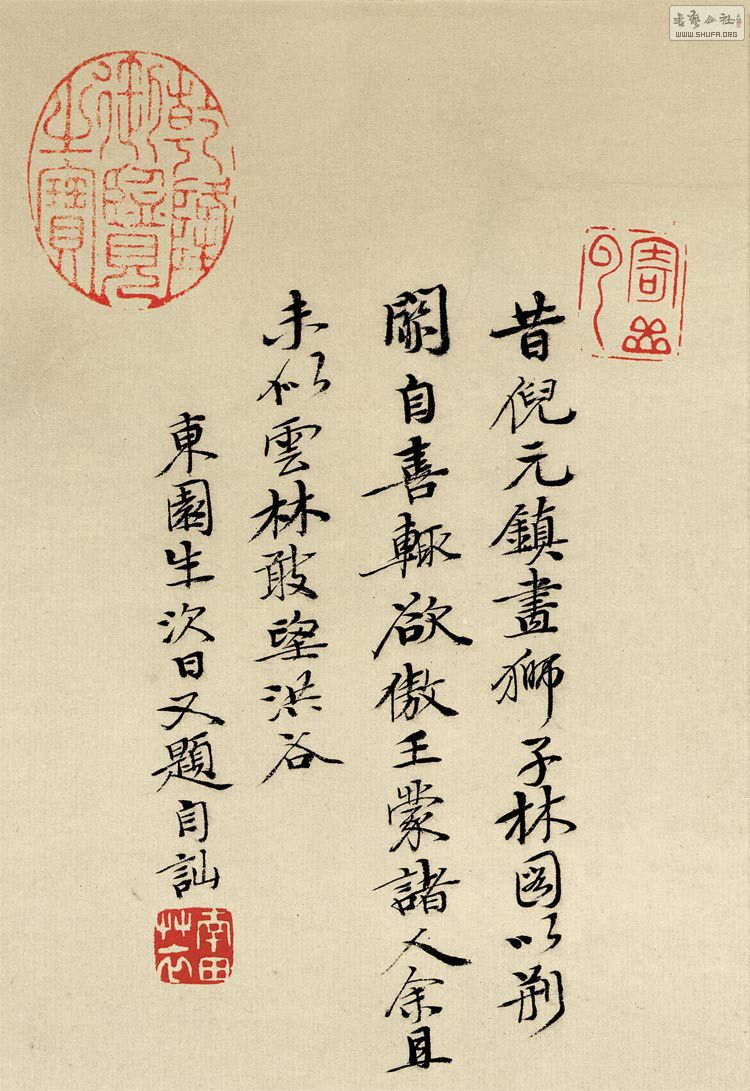 書藝公社
WWW.SHUFA.ORG
昔倪元鎮畫獅子林圖以荊
關自喜輒欲傲王蒙諸人余且
未似雲林敢望洪谷
東園生次日又題自訕
南田艸衣
乾隆御覽之寶